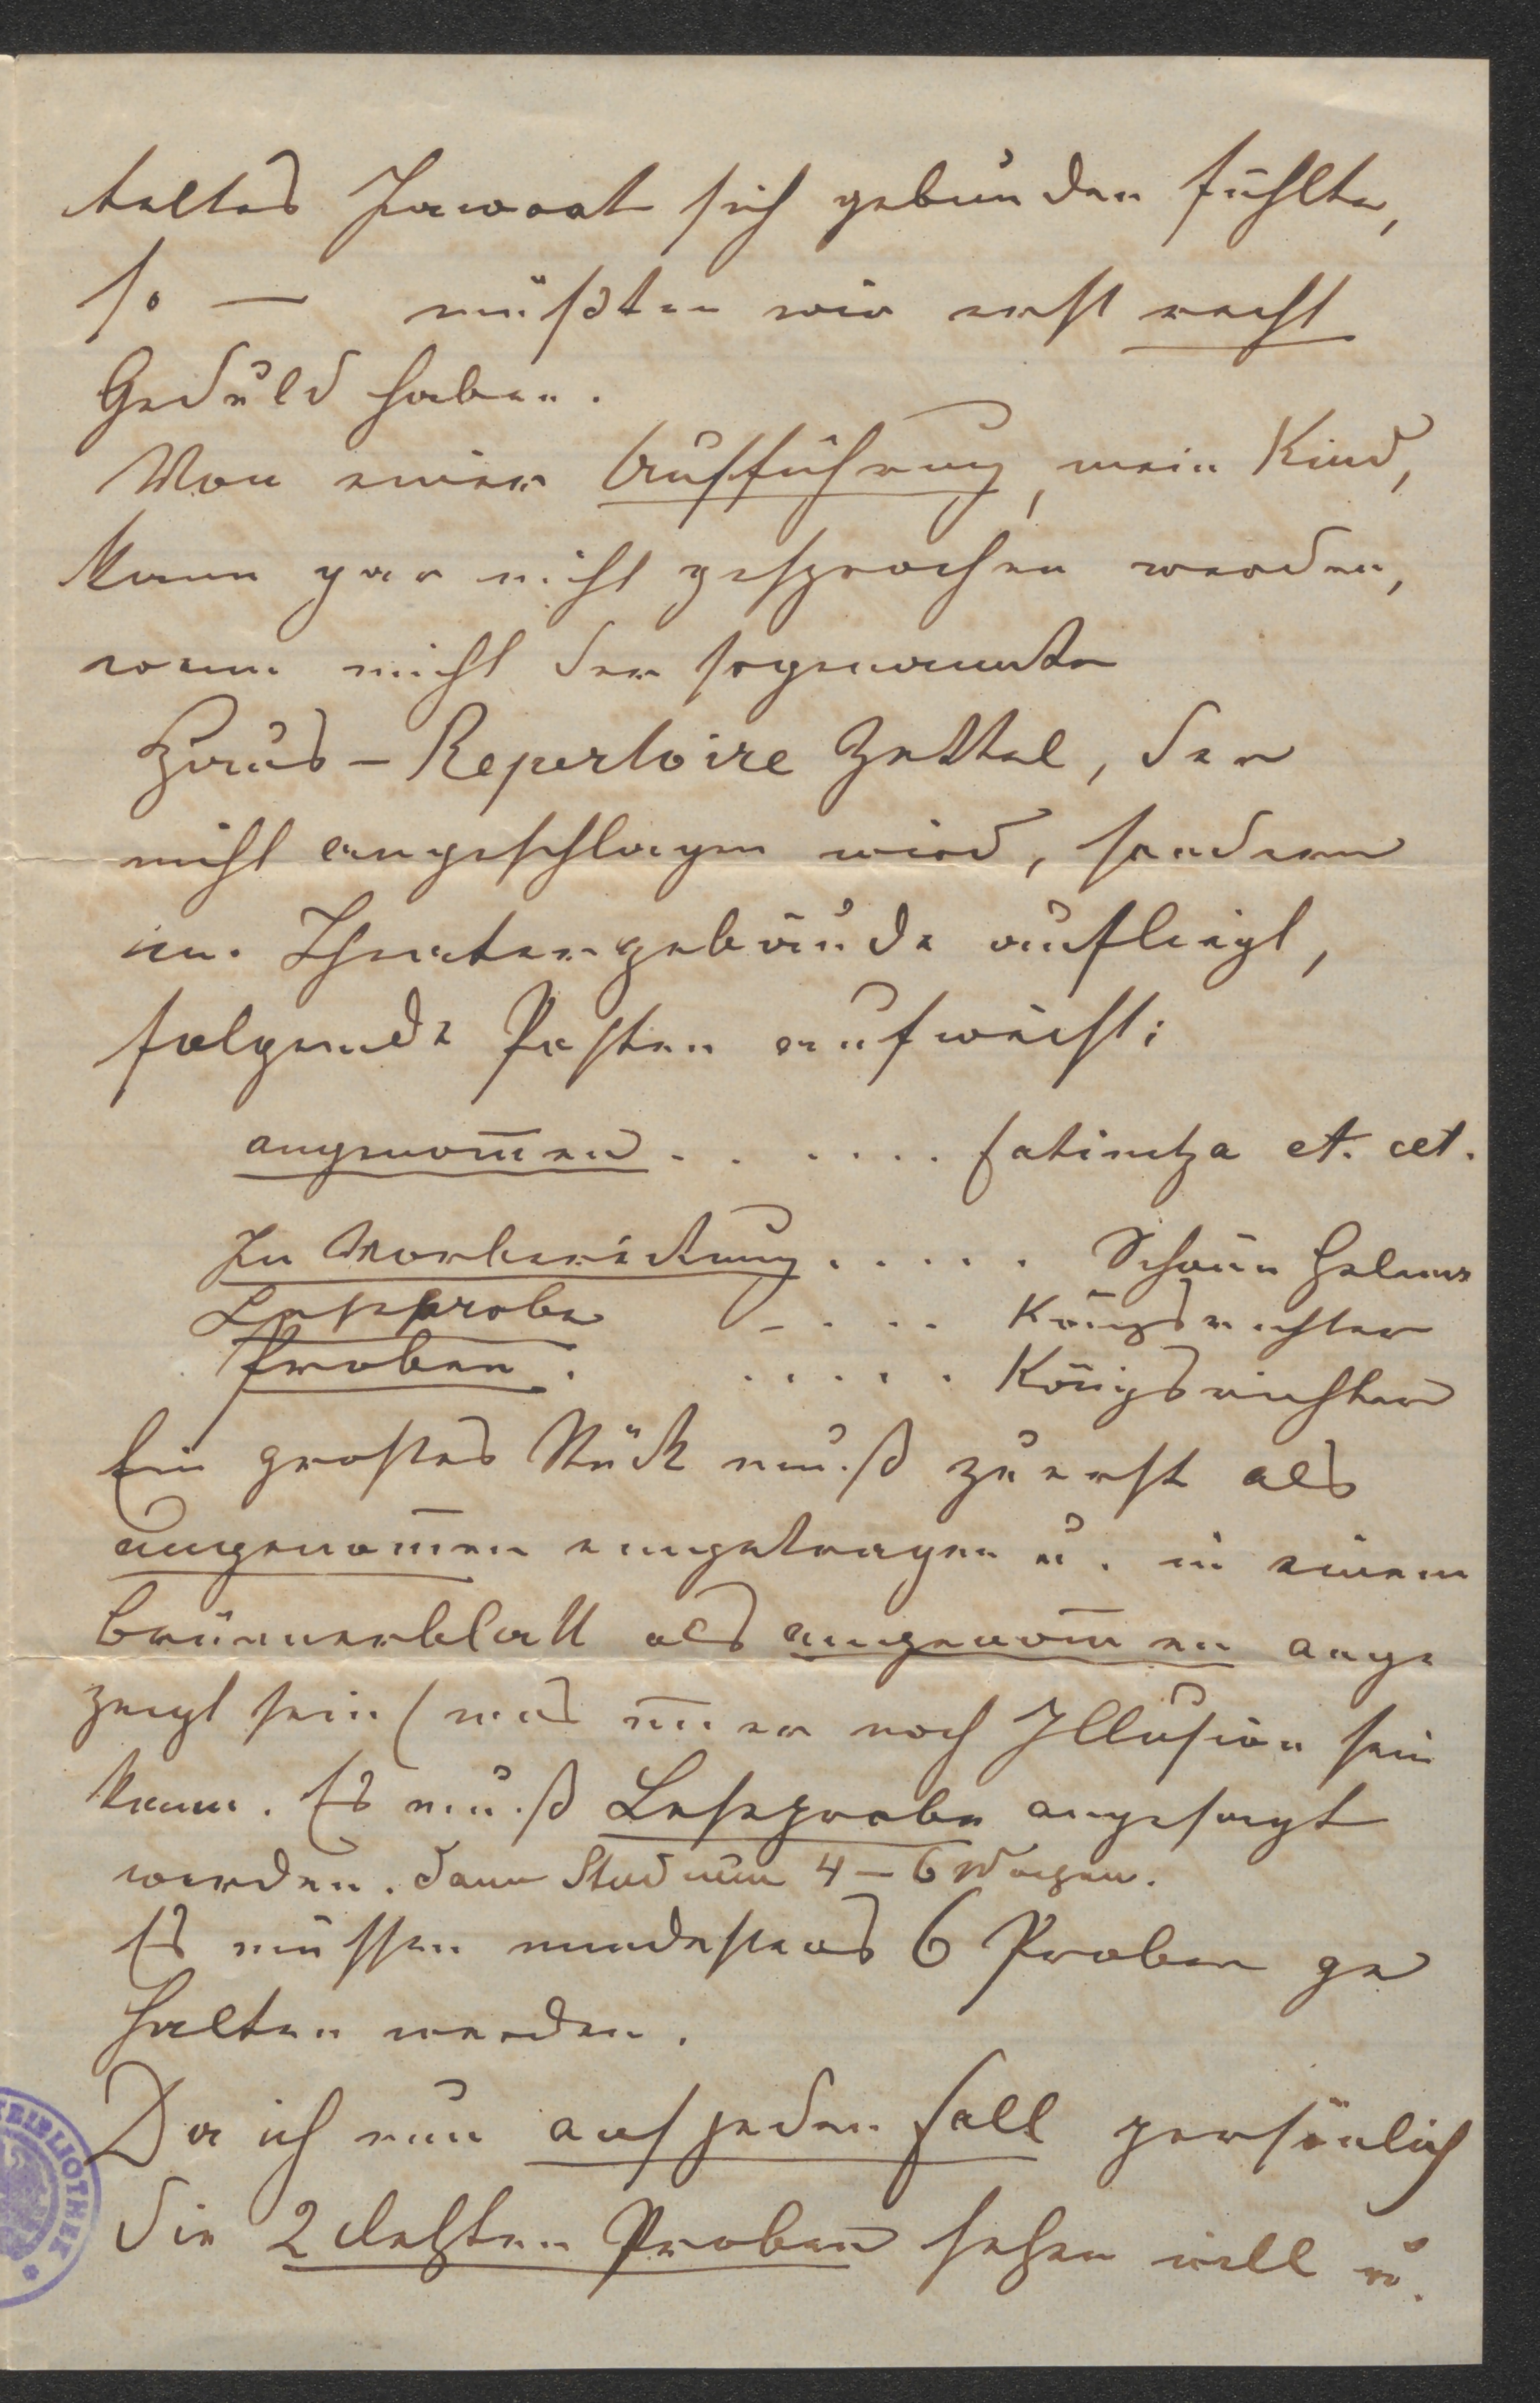 teltes Jawort sich gebunden fühlte,
so — müßten wir erst recht
Geduld haben.
Von einer Aufführung, mein Kind,
kann gar nicht gesprochen werden,
wenn nicht der sogenannte
Haus-Repertoire Zettel, der
nicht angeschlagen wird, sondern
im Theatergebäude aufliegt,
folgende Posten aufweist:
angenom̄en . . . . . . . fatinitza et. cet.
In Vorbereitung . . . . . Schöne Helena
Leseprobe - . . . Königsrichter
Proben . . . . . . Königsrichter
Ein großes Stück muß zuerst als
angenom̄en eingetragen u. in einem
Brünnerblatt als angenom̄en ange
zeigt sein (was im̄er noch Illusion sein
kann. Es muß Leseprobe angesagt
werden. dann Studium 4 – 6 Wochen.
Es müssen mindestens 6 Proben ge
halten werden.
Da ich nun auf jeden Fall persönlich
die 2 letzten Proben sehen will u.
BIBLIOTHEK